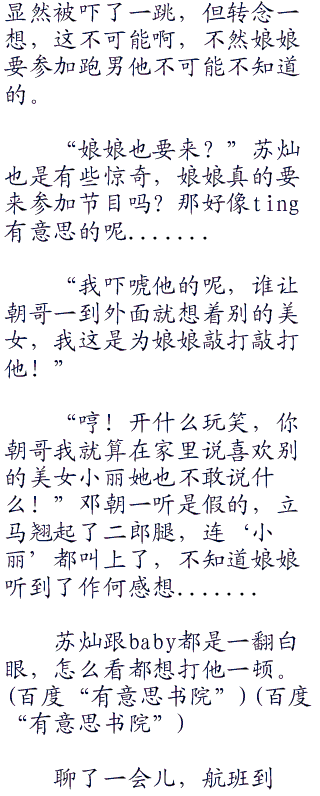 显然被吓了一跳，但转念一
想，这不可能啊，不然娘娘
要参加跑男他不可能不知道
的。
“娘娘也要来？”苏灿
也是有些惊奇，娘娘真的要
来参加节目吗？那好像ting
有意思的呢.......
“我吓唬他的呢，谁让
朝哥一到外面就想着别的美
女，我这是为娘娘敲打敲打
他！”
“哼！开什么玩笑，你
朝哥我就算在家里说喜欢别
的美女小丽她也不敢说什
么！”邓朝一听是假的，立
马翘起了二郎腿，连‘小
丽’都叫上了，不知道娘娘
听到了作何感想.......
苏灿跟baby都是一翻白
眼，怎么看都想打他一顿。
(百度“有意思书院”)(百度
“有意思书院”)
聊了一会儿，航班到